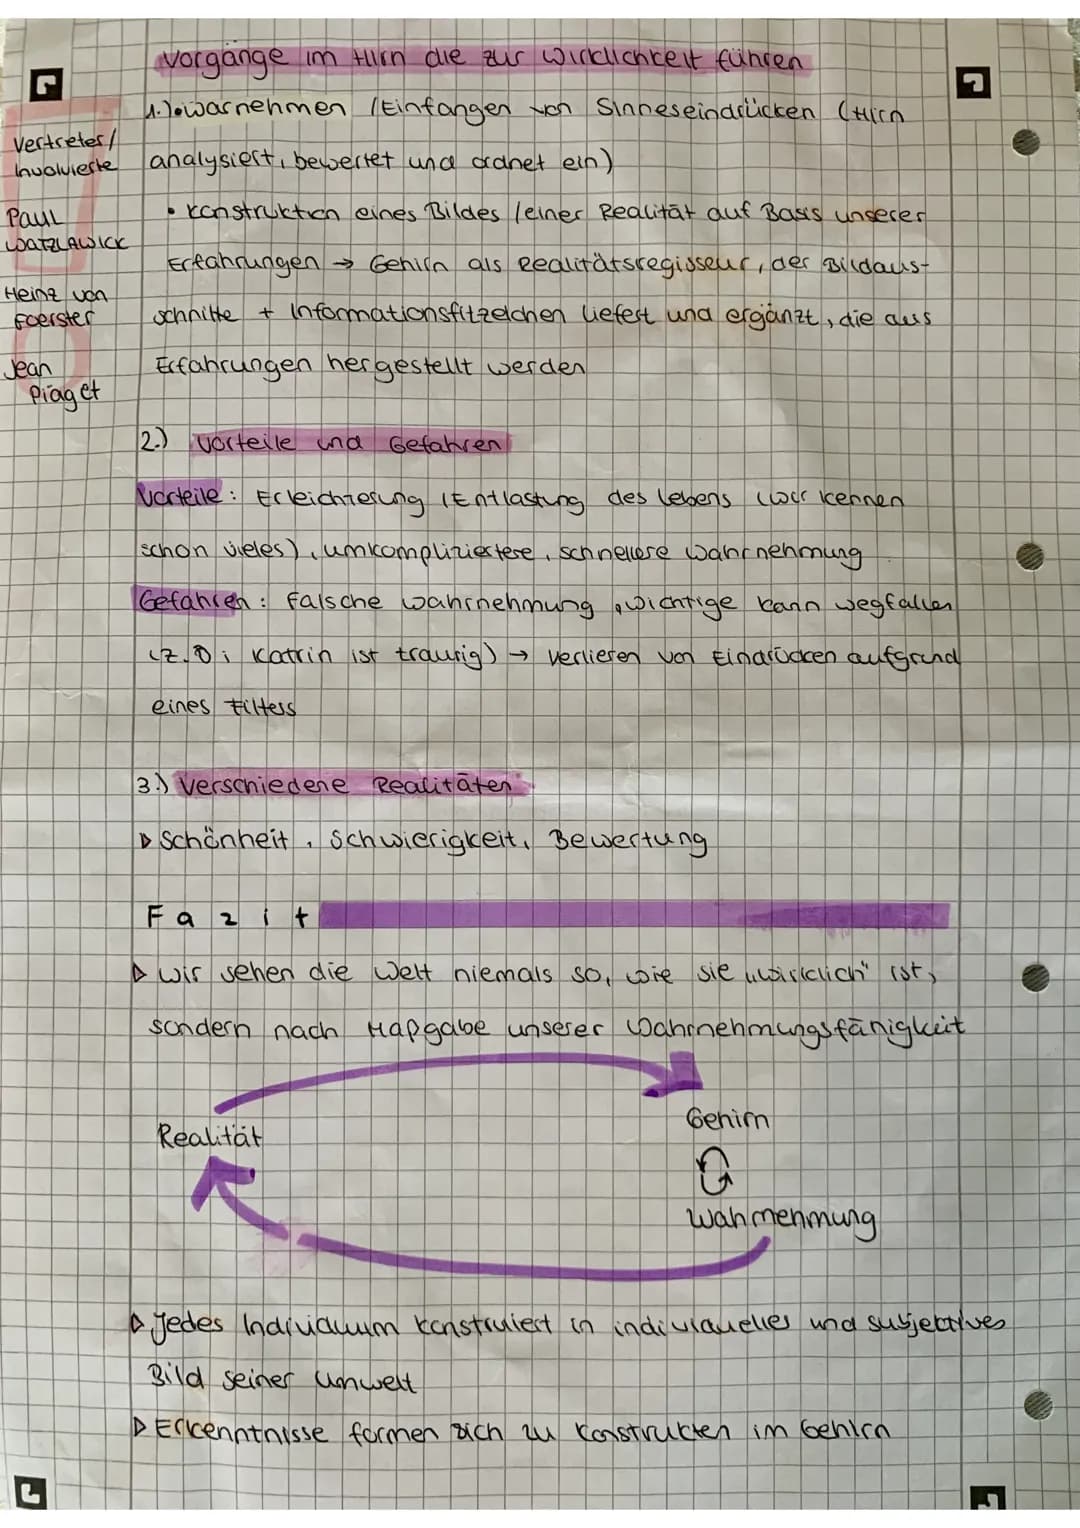 Vorgänge im Hirn die zur Wirklichkeit führen
1.) • warnehmen / Einfangen von Sinneseindrücken (Hirn
analysiert, bewertet und ordnet ein)
• Konstruktion eines Bildes / einer Realität auf Basis unserer
Erfahrungen → Gehirn als Realitätsregisseur, der Bildaus-
schnitte + Informationsfitzelchen liefert und ergänzt, die aus
Erfahrungen hergestellt werden
Vertreter /
Involvierte
Paul
WATZLAWICK
Heinz von
Foerster
Jean
Piaget
2.) Vorteile und Gefahren
Vorteile: Erleichterung / Entlastung des Lebens (wir kennen
schon vieles), umkompliziertere, schnellere Wahrnehmung
Gefahren: falsche Wahrnehmung, wichtige kann wegfallen
(z.B; Katrin ist traurig) → verlieren von Eindrücken aufgrund
eines Filters
3.) Verschiedene Realitäten
▷ Schönheit, Schwierigkeit, Bewertung
Fazit
▷ wir sehen die Welt niemals so, wie sie „wirklich" ist,
sondern nach Maßgabe unserer Wahrnehmungsfähigkeit
Realität
Gehirn
Wahrnehmung
▷ Jedes Individuum konstruiert in individuelles und subjektives
Bild seiner Umwelt
▷ Erkenntnisse formen sich zu Konstrukten im Gehirn